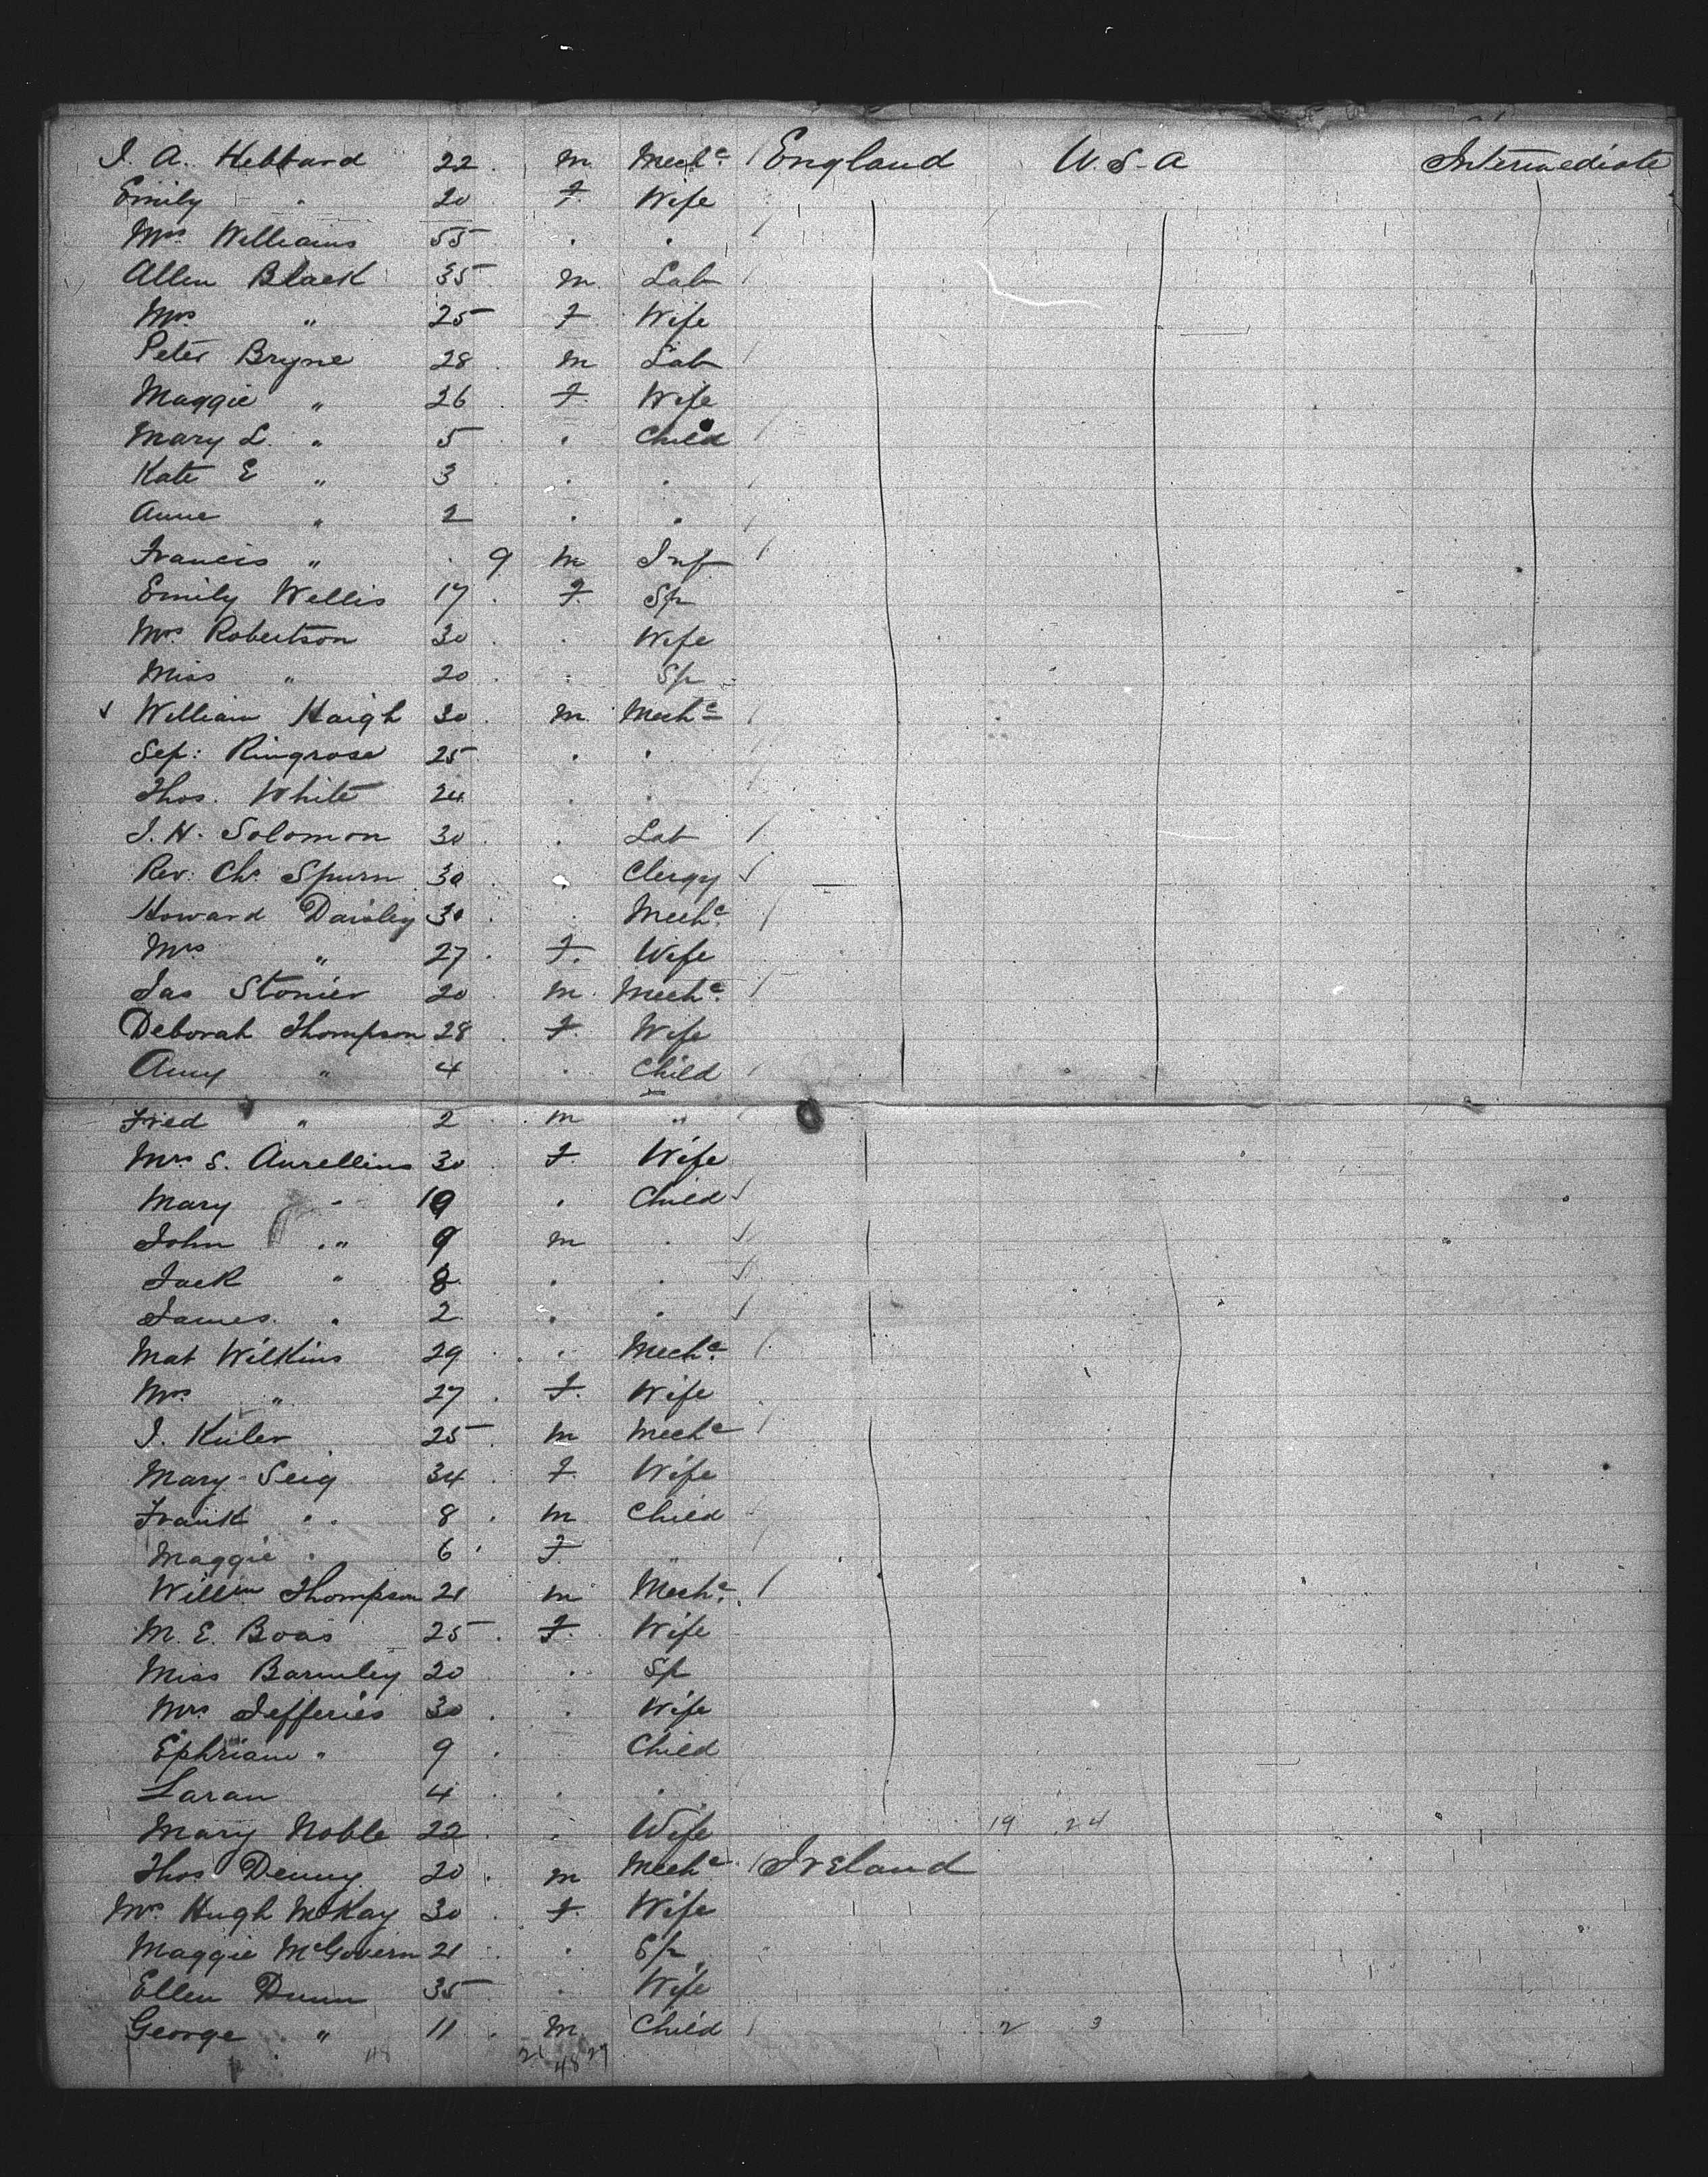 J. A. Hebbard 22 m Mech^c England U.S.A Intermediate
Emily " 20 F. Wife
Mrs Williams 55 . .
Allen Black 35 m Lab
Mrs " 25 F Wife
Peter Bryne 28 m Lab
Maggie " 26 F. Wife
Mary L. " 5 . Child
Kate E " 3 . .
Anne " 2 . .
Francis " 9 m Inf
Emily Wellis 17 F. Sp
Mrs Robertson 30 . Wife
Miss " 20 . Sp
William Haigh 30 m Mech^c
Sep: Ringrose 25 . .
Thos. White 24 . .
J. H. Solomon 30 . Lab
Rev. Chs. Spurn 30 . Clergy
Howard Daisley 30 Mech^c
Mrs " 27 F. Wife
Jas Stonier 20 m. Mech^c.
Deborah Thompson 28 F. Wife
Amy " 4 . Child
Fred " 2 m "
Mrs S. Aurellius 30 F. Wife
Mary " 10 . Child
John " 9 m .
Jack " 8 . .
James. " 2 . .
Mat Wilkins 29 . Mech^c.
Mrs " 27 F. Wife
J. Kuler 25 m Mech^c
Mary Seig 34 F. Wife
Frank " 8 m Child
Maggie " 6 F. "
Willm Thompson 21 m Mech^c.
M. E. Boas 25 F. Wife
Miss Barnley 20 . Sp
Mrs Jefferies 30 . Wife
Ephriam " 9 Child
Laran 4 . .
Mary Noble 22 . Wife 19 24
Thos Denny 20 m Mech^c Ireland
Mrs Hugh McKay 30 F. Wife
Maggie McGovern 21 . Sp
Ellen Dunn 35 . Wife
George " 11 m. Child 2 3
48 21 48 27